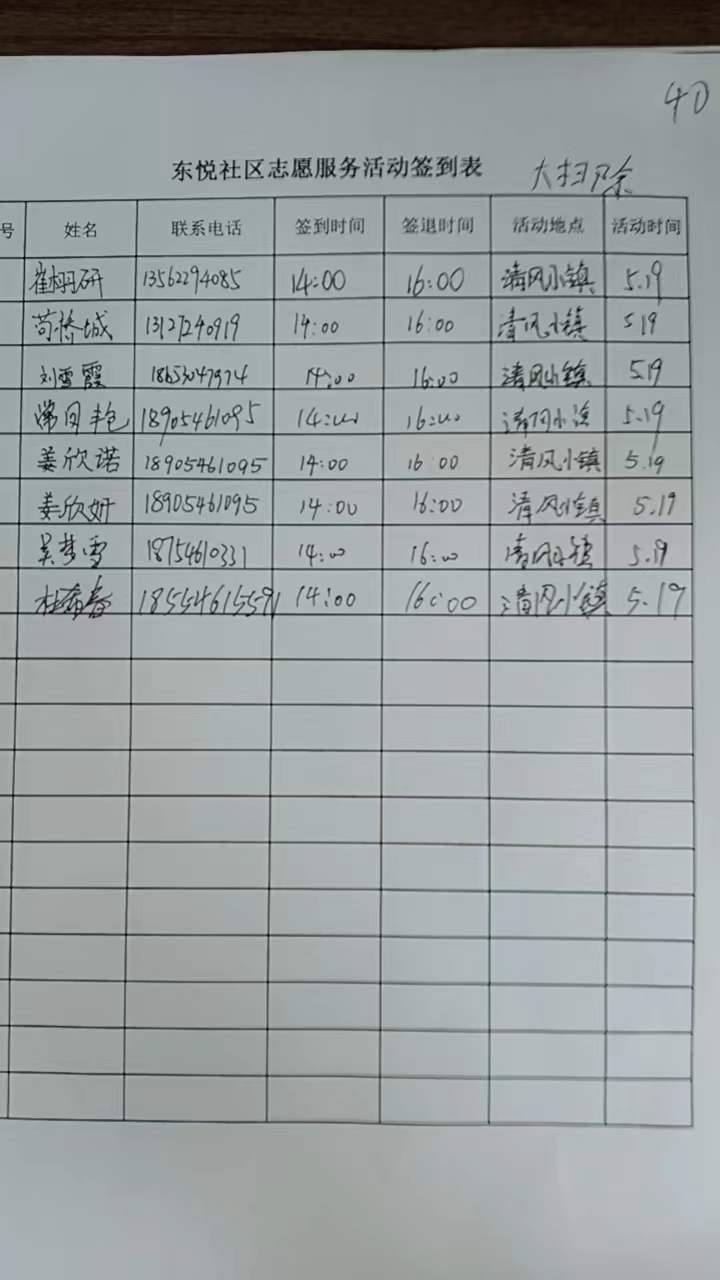 40
东悦社区志愿服务活动签到表 大扫除
号 姓名 联系电话 签到时间 签退时间 活动地点 活动时间
崔栩研 13562294085 14:00 16:00 清风小镇 5.19
苟桥城 13127240919 14:00 16:00 清风小镇 5.19
刘雪霞 14:00 16:00 清风小镇 5.19
18905461095 14:00 16:00 清风小镇 5.19
姜欣诺 18905461095 14:00 16:00 清风小镇 5.19
姜欣妍 18905461095 14:00 16:00 清风小镇 5.19
吴梦雪 18754610331 14:00 16:00 清风小镇 5.19
杜希春 18554615591 14:00 16:00 清风小镇 5.19